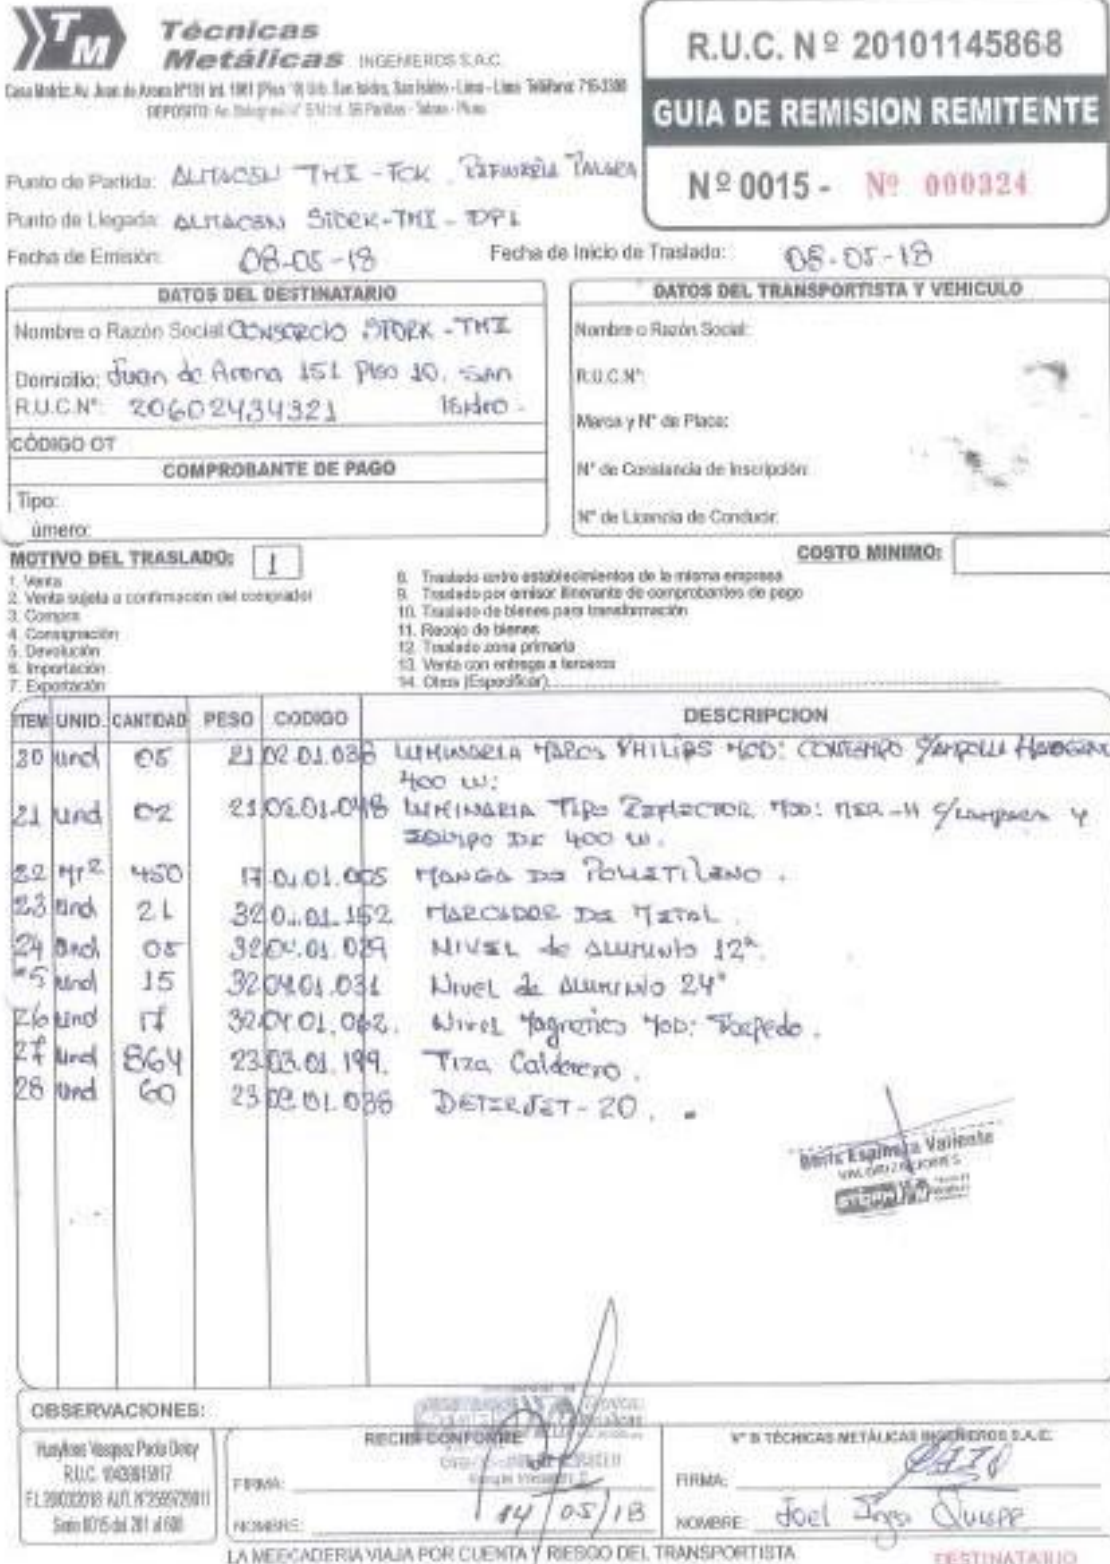 TM Técnicas
Metálicas INGENIEROS S.A.C.
R.U.C. Nº 20101145868
GUIA DE REMISION REMITENTE
Nº 0015 - Nº 000324
Punto de Partida: ALMACEN TMI - FCK. REFINERIA TALARA
Punto de Llegada: ALMACEN STORK-TMI - DP1
Fecha de Emisión: 08-05-18
Fecha de Inicio de Traslado: 08-05-18
DATOS DEL DESTINATARIO
Nombre o Razón Social: CONSORCIO STORK - TMI
Domicilio: Juan de Arona 151 Piso 10, SAN
Isidro.
R.U.C.N°: 20602434321
CÓDIGO OT
COMPROBANTE DE PAGO
Tipo:
úmero:
DATOS DEL TRANSPORTISTA Y VEHICULO
Nombre o Razón Social:
R.U.C.N°:
Marca y N° de Placa:
N° de Constancia de Inscripción:
N° de Licencia de Conducir:
MOTIVO DEL TRASLADO: 1
COSTO MINIMO:
1. Venta
2. Venta sujeta a confirmación del comprador
3. Compra
4. Consignación
5. Devolución
6. Importación
7. Exportación
8. Traslado entre establecimientos de la misma empresa
9. Traslado por emisor itinerante de comprobantes de pago
10. Traslado de bienes para transformación
11. Recojo de bienes
12. Traslado zona primaria
13. Venta con entrega a terceros
14. Otros (Especificar)
ITEM UNID. CANTIDAD PESO CODIGO DESCRIPCION
20 und 05 2102.01.038 LUMINARIA MARCA PHILIPS MOD: CONTEMPO S/AMPOLLA HALOGENO
400 W.
21 und 02 2102.01.048 LUMINARIA TIPO REFLECTOR MOD: MER-H C/LAMPARA Y
EQUIPO DE 400 W.
22 Mt2 450 1701.01.005 MANGA DE POLIETILENO.
23 und 21 3204.01.152 MARCADOR DE METAL.
24 und 05 3204.01.029 NIVEL de ALUMINIO 12".
25 und 15 3204.01.031 Nivel de ALUMINIO 24"
26 und 17 3204.01.062. Nivel Magnetico MOD: Torpedo.
27 und 864 2303.01.199. Tiza Calderero.
28 und 60 2302.01.038 DETERJET-20.
Doris Espinoza Valiente
VALORIZACIONES
OBSERVACIONES:
RECIBI CONFORME
FIRMA:
14/05/18
NOMBRE:
V° B TÉCNICAS METÁLICAS INGENIEROS S.A.C.
FIRMA:
NOMBRE: Joel Quispe
Serie 0015 del 201 al 600
LA MERCADERIA VIAJA POR CUENTA Y RIESGO DEL TRANSPORTISTA
DESTINATARIO